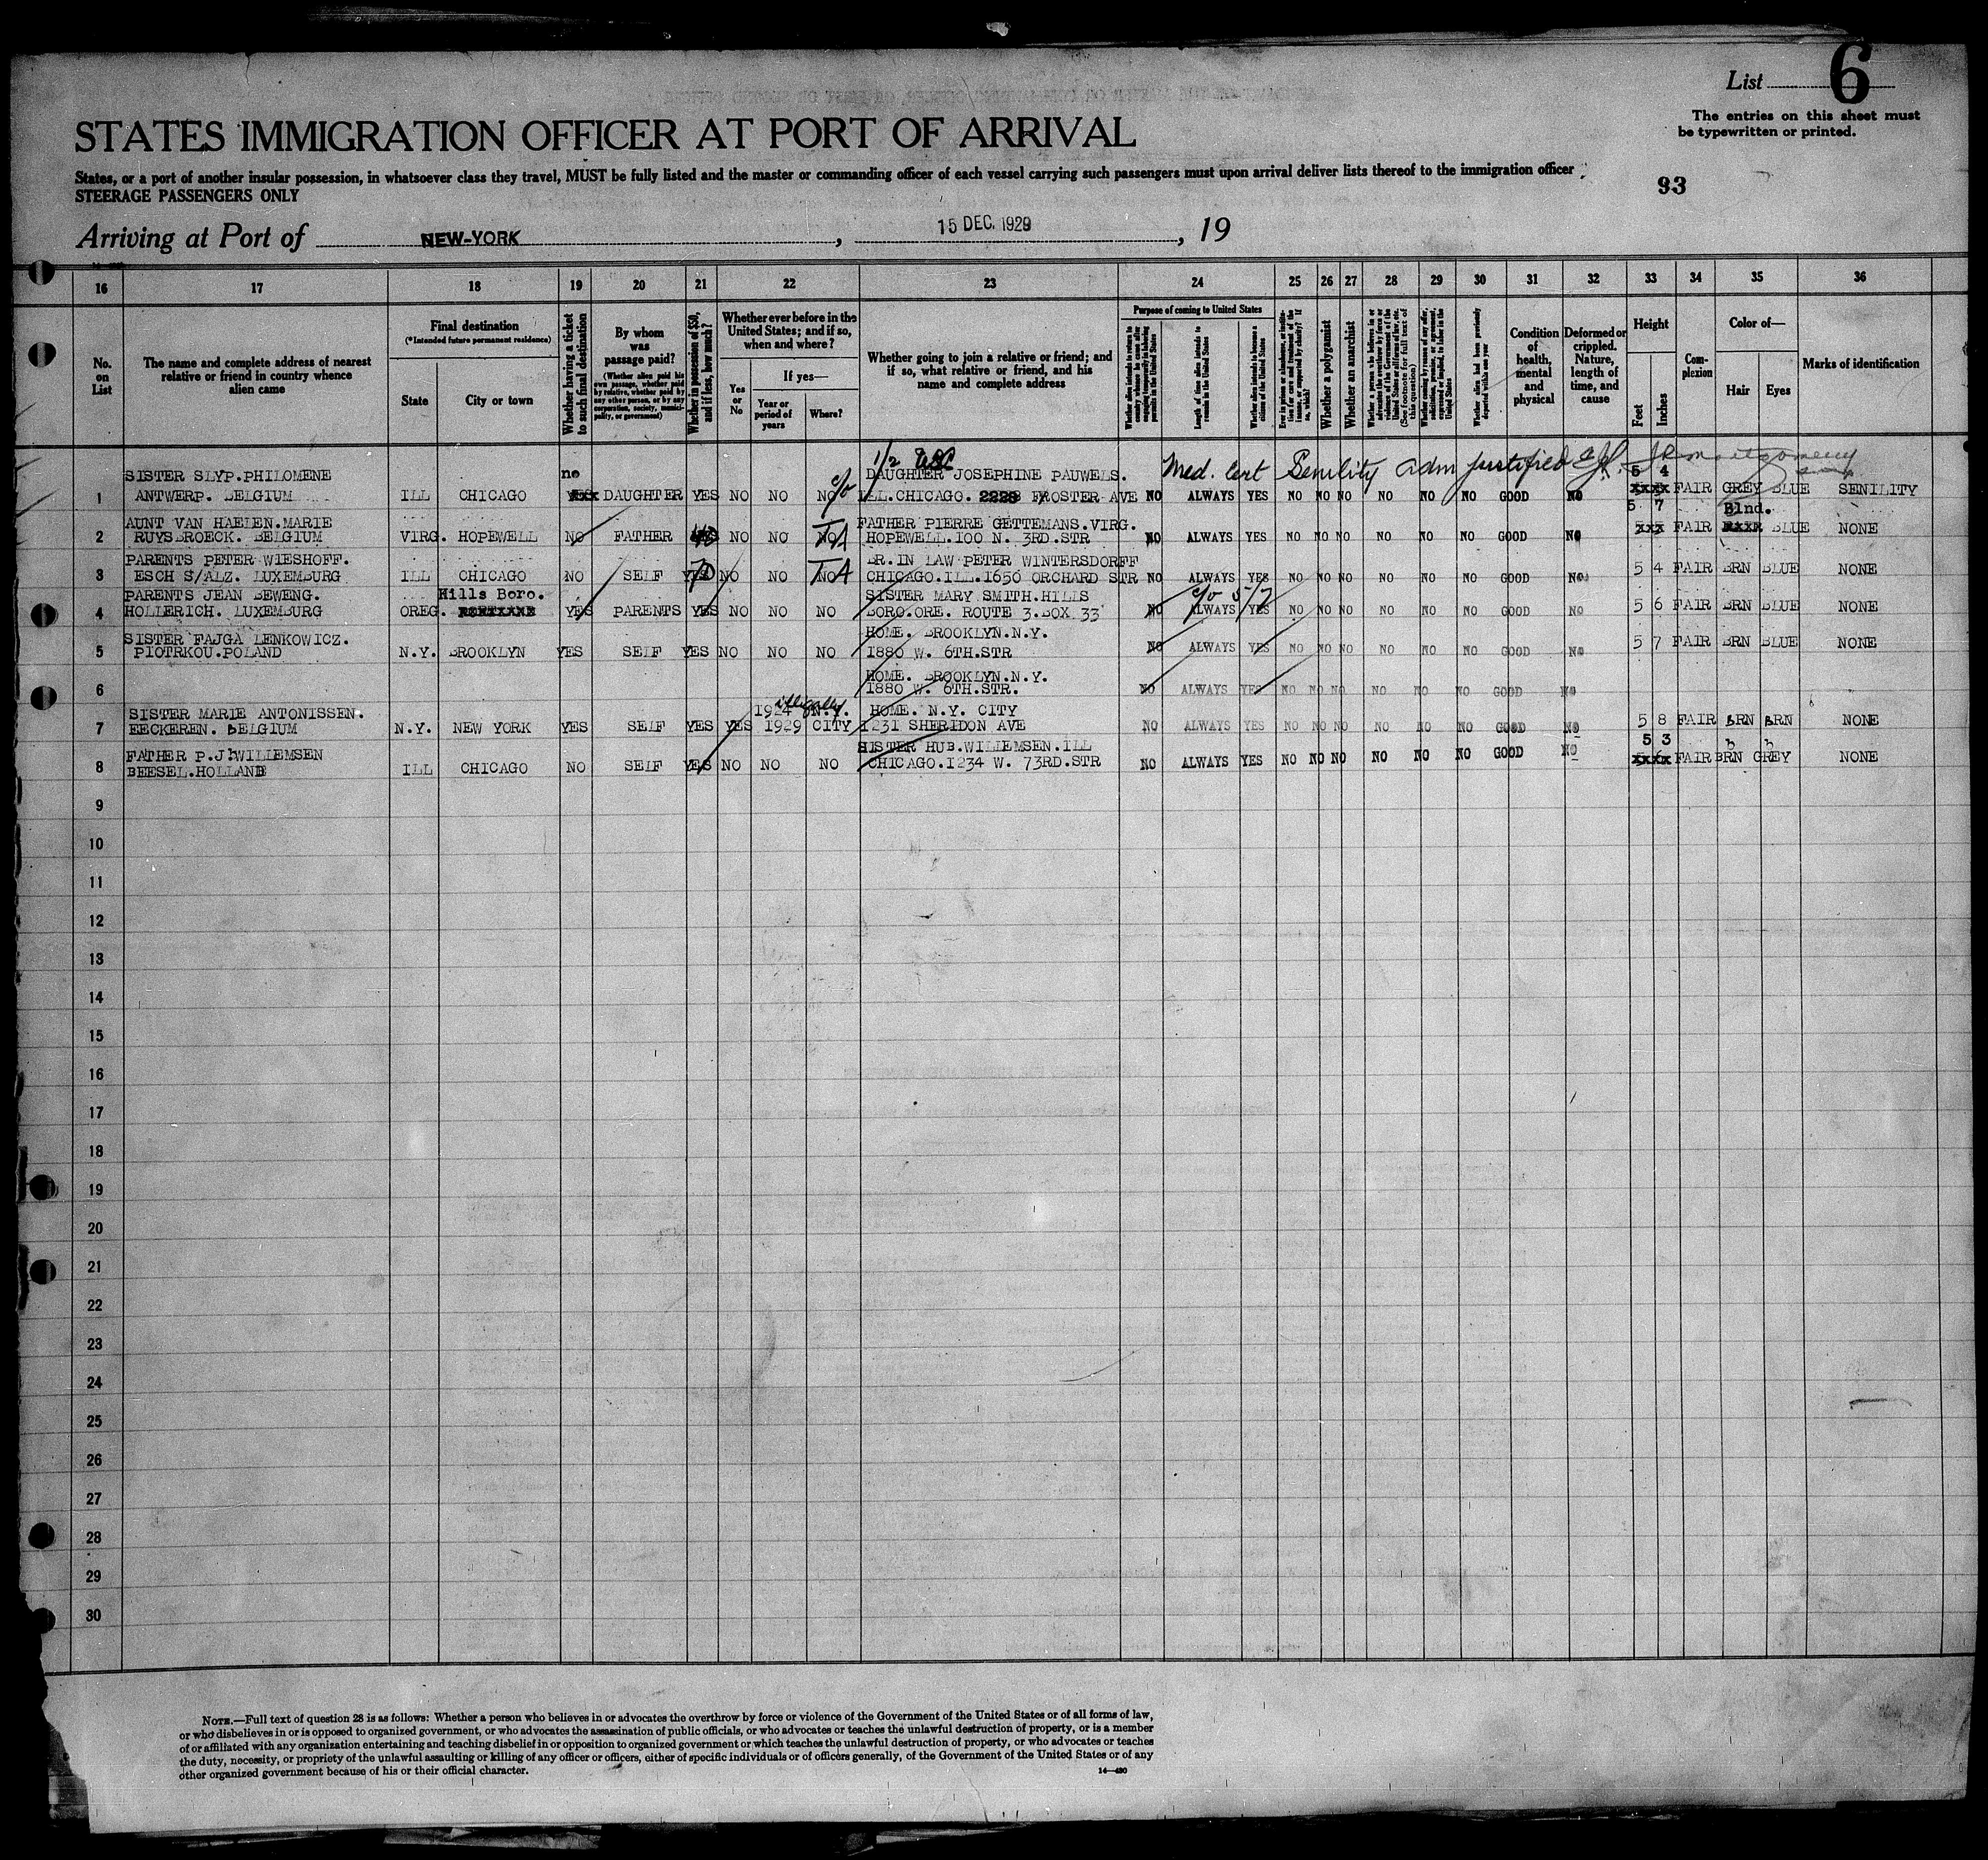 List 6
The entries on this sheet must
be typewritten or printed.
STATES IMMIGRATION OFFICER AT PORT OF ARRIVAL
States, or a port of another insular possession, in whatsoever class they travel, MUST be fully listed and the master or commanding officer of each vessel carrying such passengers must upon arrival deliver lists thereof to the immigration officer
STEERAGE PASSENGERS ONLY
93
Arriving at Port of NEW-YORK, 15 DEC. 1929, 19
16 17 18 19 20 21 22 23 24 25 26 27 28 29 30 31 32 33 34 35 36
No. on List
The name and complete address of nearest relative or friend in country whence alien came
Final destination
(*Intended future permanent residence)
State
City or town
Whether having a ticket to such final destination
By whom was passage paid?
(Whether alien paid his own passage, whether paid by relative, whether paid by any other person, or by any corporation, society, municipality, or government)
Whether in possession of $50, and if less, how much?
Whether ever before in the United States; and if so, when and where?
Yes or No
If yes—
Year or period of years
Where?
Whether going to join a relative or friend; and if so, what relative or friend, and his name and complete address
Purpose of coming to United States
Length of time alien intends to remain in the United States
Whether alien intends to become a citizen of the United States
Whether a polygamist
Whether an anarchist
Whether alien had been previously deported within one year
Condition of health, mental and physical
Deformed or crippled. Nature, length of time, and cause
Height
Feet
Inches
Complexion
Color of—
Hair
Eyes
Marks of identification
1/2 USC
Med. Cert Senility adm justified
SISTER SLYP.PHILOMENE no DAUGHTER JOSEPHINE PAUWELS. 5 4
1 ANTWERP. BELGIUM ILL CHICAGO DAUGHTER YES NO NO NO c/o ILL.CHICAGO. 2228 FROSTER AVE NO ALWAYS YES NO NO NO NO NO NO GOOD NO FAIR GREY BLUE SENILITY
AUNT VAN HAELEN.MARIE FATHER PIERRE GETTEMANS.VIRG. 5 7 Blnd.
2 RUYSBROECK. BELGIUM VIRG. HOPEWELL NO FATHER NO NO NO HOPEWELL.100 N. 3RD.STR NO ALWAYS YES NO NO NO NO NO NO GOOD NO FAIR BLUE NONE
PARENTS PETER WIESHOFF. BR.IN LAW PETER WINTERSDORFF
3 ESCH S/ALZ. LUXEMBURG ILL CHICAGO NO SELF YES 70 NO NO NO CHICAGO.ILL.1656 ORCHARD STR NO ALWAYS YES NO NO NO NO NO NO GOOD NO 5 4 FAIR BRN BLUE NONE
PARENTS JEAN BEWENG. Hills Boro. SISTER MARY SMITH.HILLS c/o 5/7
4 HOLLERICH. LUXEMBURG OREG. YES PARENTS YES NO NO NO BORO.ORE. ROUTE 3.BOX 33 NO ALWAYS YES NO NO NO NO NO NO GOOD NO 5 6 FAIR BRN BLUE NONE
SISTER FAJGA LENKOWICZ. HOME. BROOKLYN.N.Y.
5 PIOTRKOU.POLAND N.Y. BROOKLYN YES SELF YES NO NO NO 1880 W. 6TH.STR NO ALWAYS YES NO NO NO NO NO NO GOOD NO 5 7 FAIR BRN BLUE NONE
HOME. BROOKLYN.N.Y.
6 1880 W. 6TH.STR. NO ALWAYS YES NO NO NO NO NO NO GOOD NO
illegally
SISTER MARIE ANTONISSEN. 1924 N.Y. HOME. N.Y. CITY
7 EECKEREN. BELGIUM N.Y. NEW YORK YES SELF YES YES 1929 CITY 1231 SHERIDON AVE NO ALWAYS YES NO NO NO NO NO NO GOOD NO 5 8 FAIR BRN BRN NONE
FATHER P.J.WILLEMSEN SISTER HUB.WILLEMSEN.ILL 5 3
8 BEESEL.HOLLAND ILL CHICAGO NO SELF YES NO NO NO CHICAGO.1234 W. 73RD.STR NO ALWAYS YES NO NO NO NO NO NO GOOD NO FAIR BRN GREY NONE
9
10
11
12
13
14
15
16
17
18
19
20
21
22
23
24
25
26
27
28
29
30
NOTE.—Full text of question 28 is as follows: Whether a person who believes in or advocates the overthrow by force or violence of the Government of the United States or of all forms of law,
or who disbelieves in or is opposed to organized government, or who advocates the assassination of public officials, or who advocates or teaches the unlawful destruction of property, or is a member
of or affiliated with any organization entertaining and teaching disbelief in or opposition to organized government or which teaches the unlawful destruction of property, or who advocates or teaches
the duty, necessity, or propriety of the unlawful assaulting or killing of any officer or officers, either of specific individuals or of officers generally, of the Government of the United States or of any
other organized government because of his or their official character.
14—430